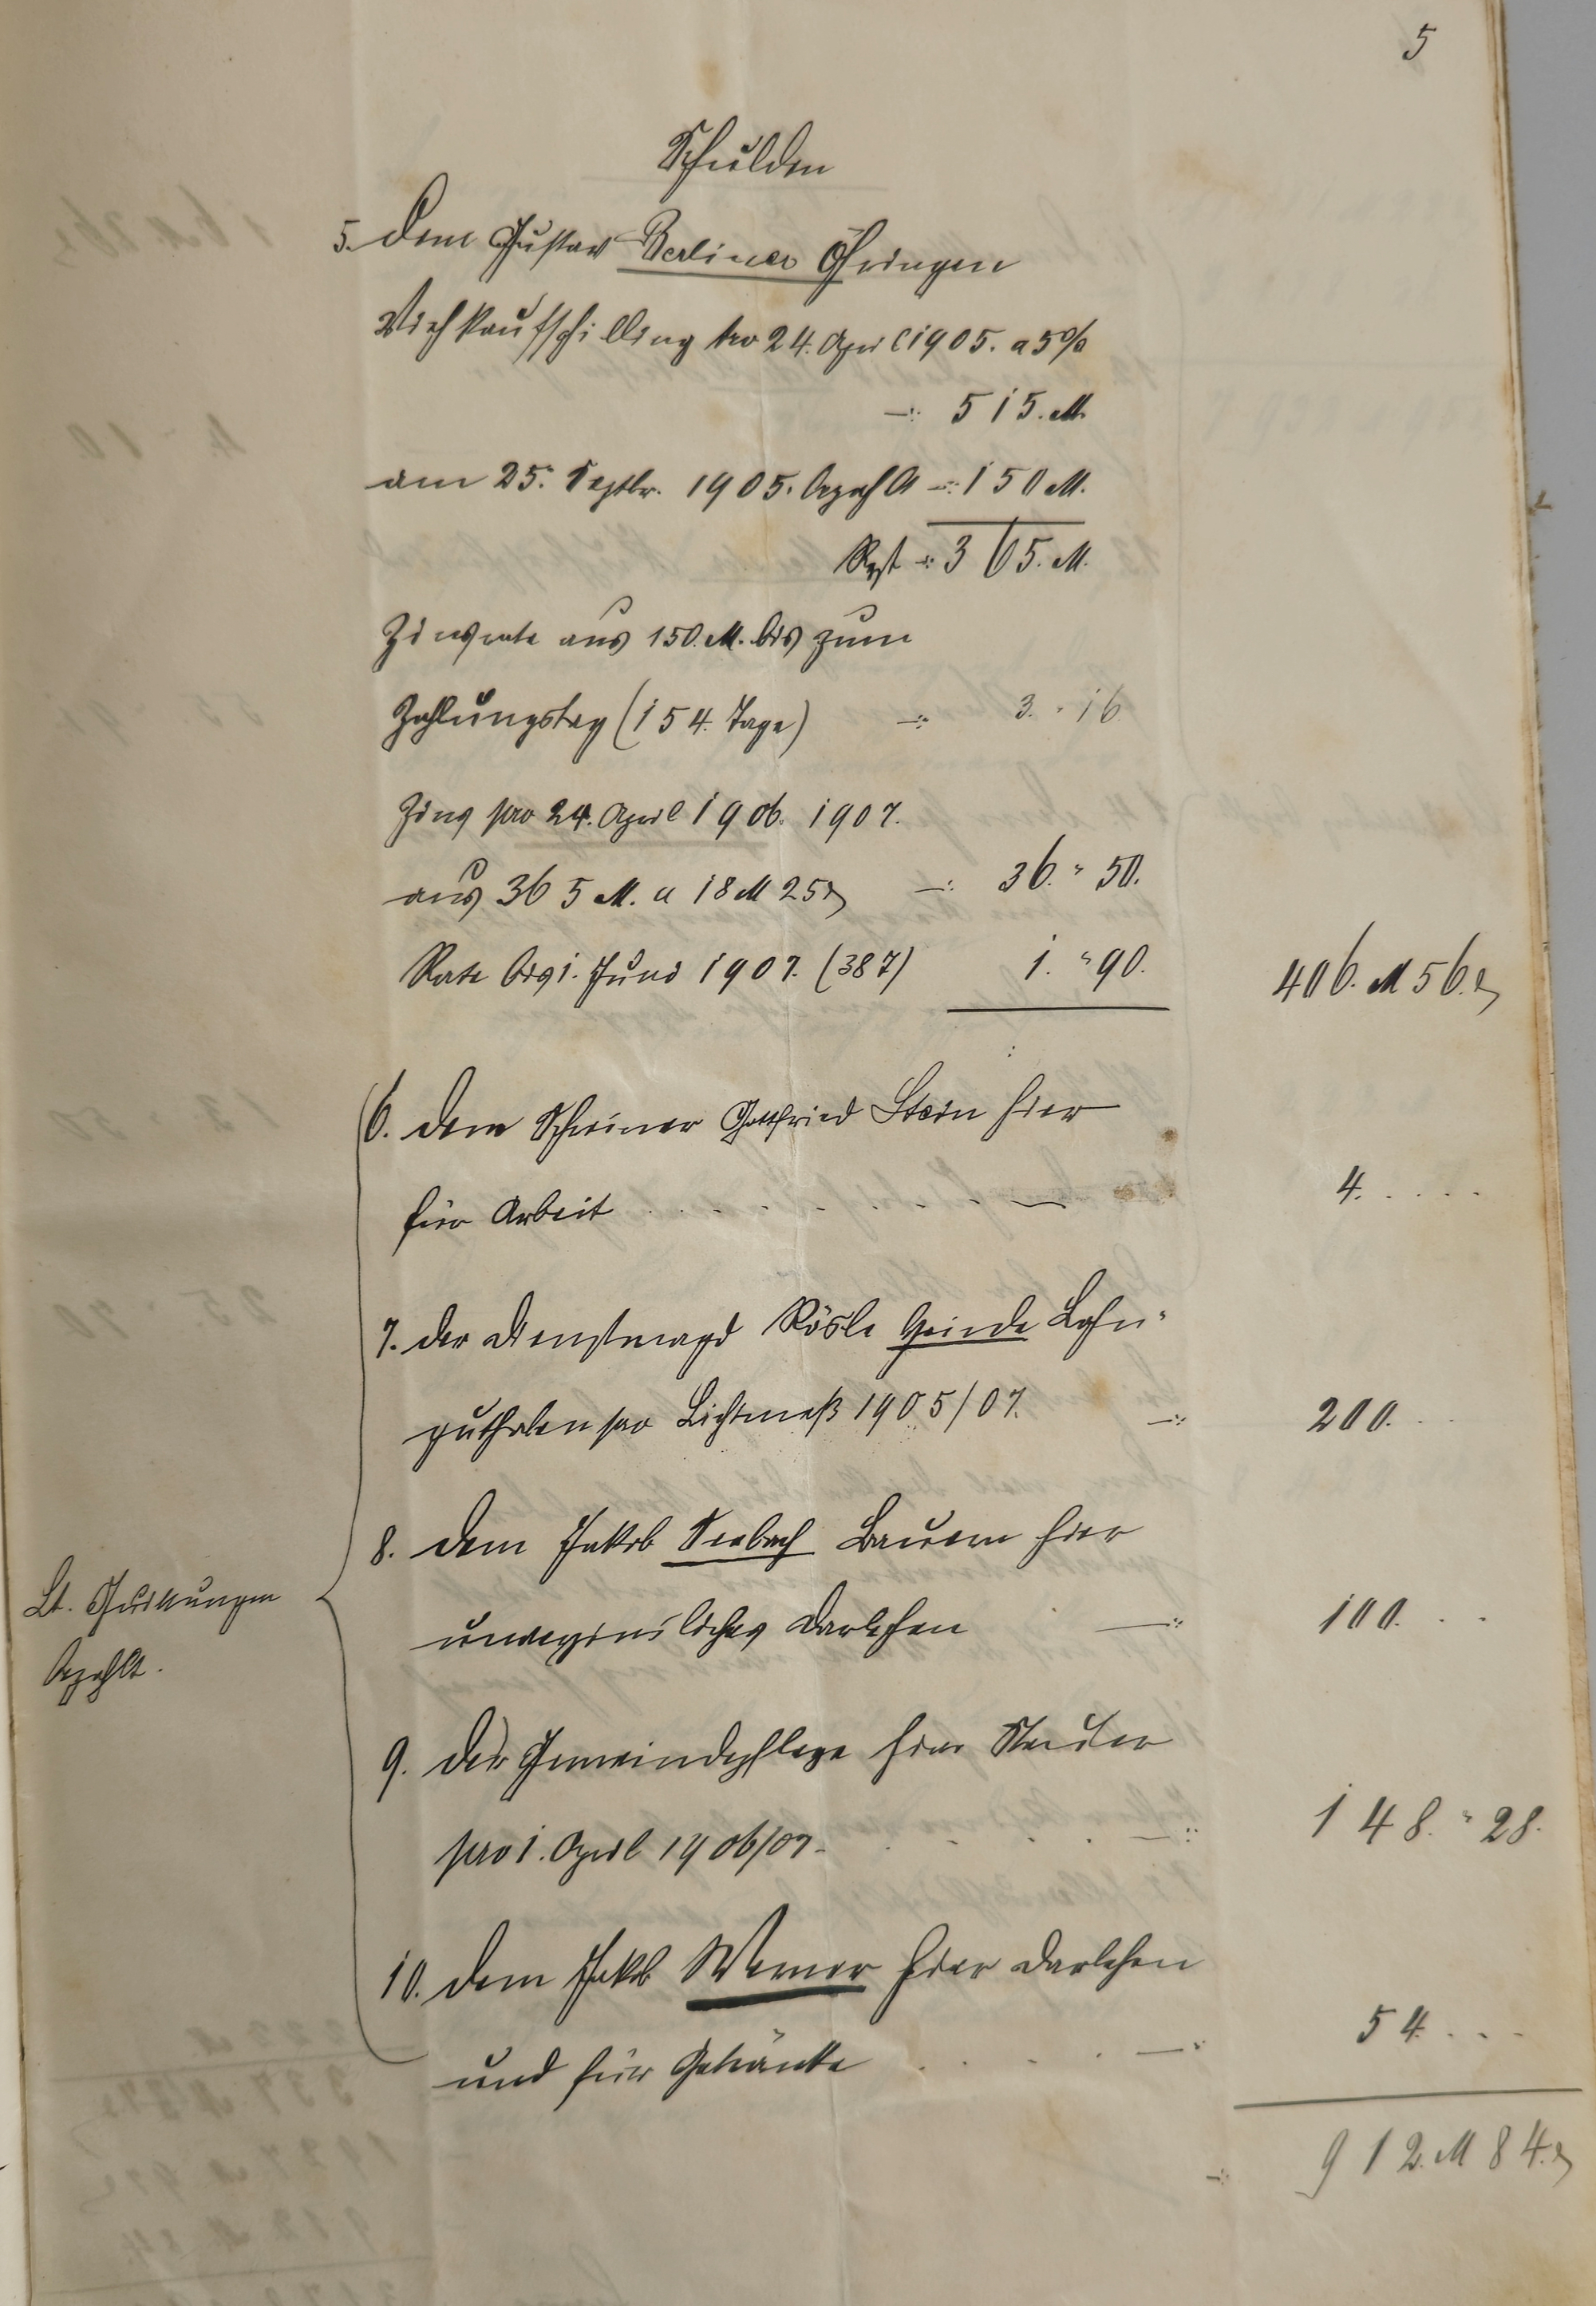 5
Schulden
5. Dem Gustav Berliner Öhringen
Viehkaufschilling pro 24. April 1905. a 5%
-: 515. M.
am 25. Septbr. 1905. bezahlt -: 150 M.
Rest -: 365. M.
Zinsrate aus 150. M. bis zum
Zahlungstag (154. Tage) -: 3. " 16
Zins pro 24. April 1906. 1907.
aus 365 M. a 18 M 25 ₰ -: 36. " 50.
Rate bis 1. Juni 1907. (387) 1. " 90. 406. M 56. ₰
6. Dem Schreiner Gottfried Stein hier
für Arbeit . . . . . . . — 4. . . . .
7. Der Dienstmagd Rösle Lohn-
guthaben pro Lichtmeß 1905/07. -: 200. . .
8. Dem Jakob Seebach Bauern hier
unverzinsliches Darlehen -: 100. . .
Lt. Quittungen
bezahlt.
9. Der Gemeindepflege hier Steuer
pro 1. April 1906/07. . . . -: 148. " 28.
10. Dem Jakob Werner hier Darlehen
und für Getränke . . . . -: 54. . . .
-: 912. M 84. ₰